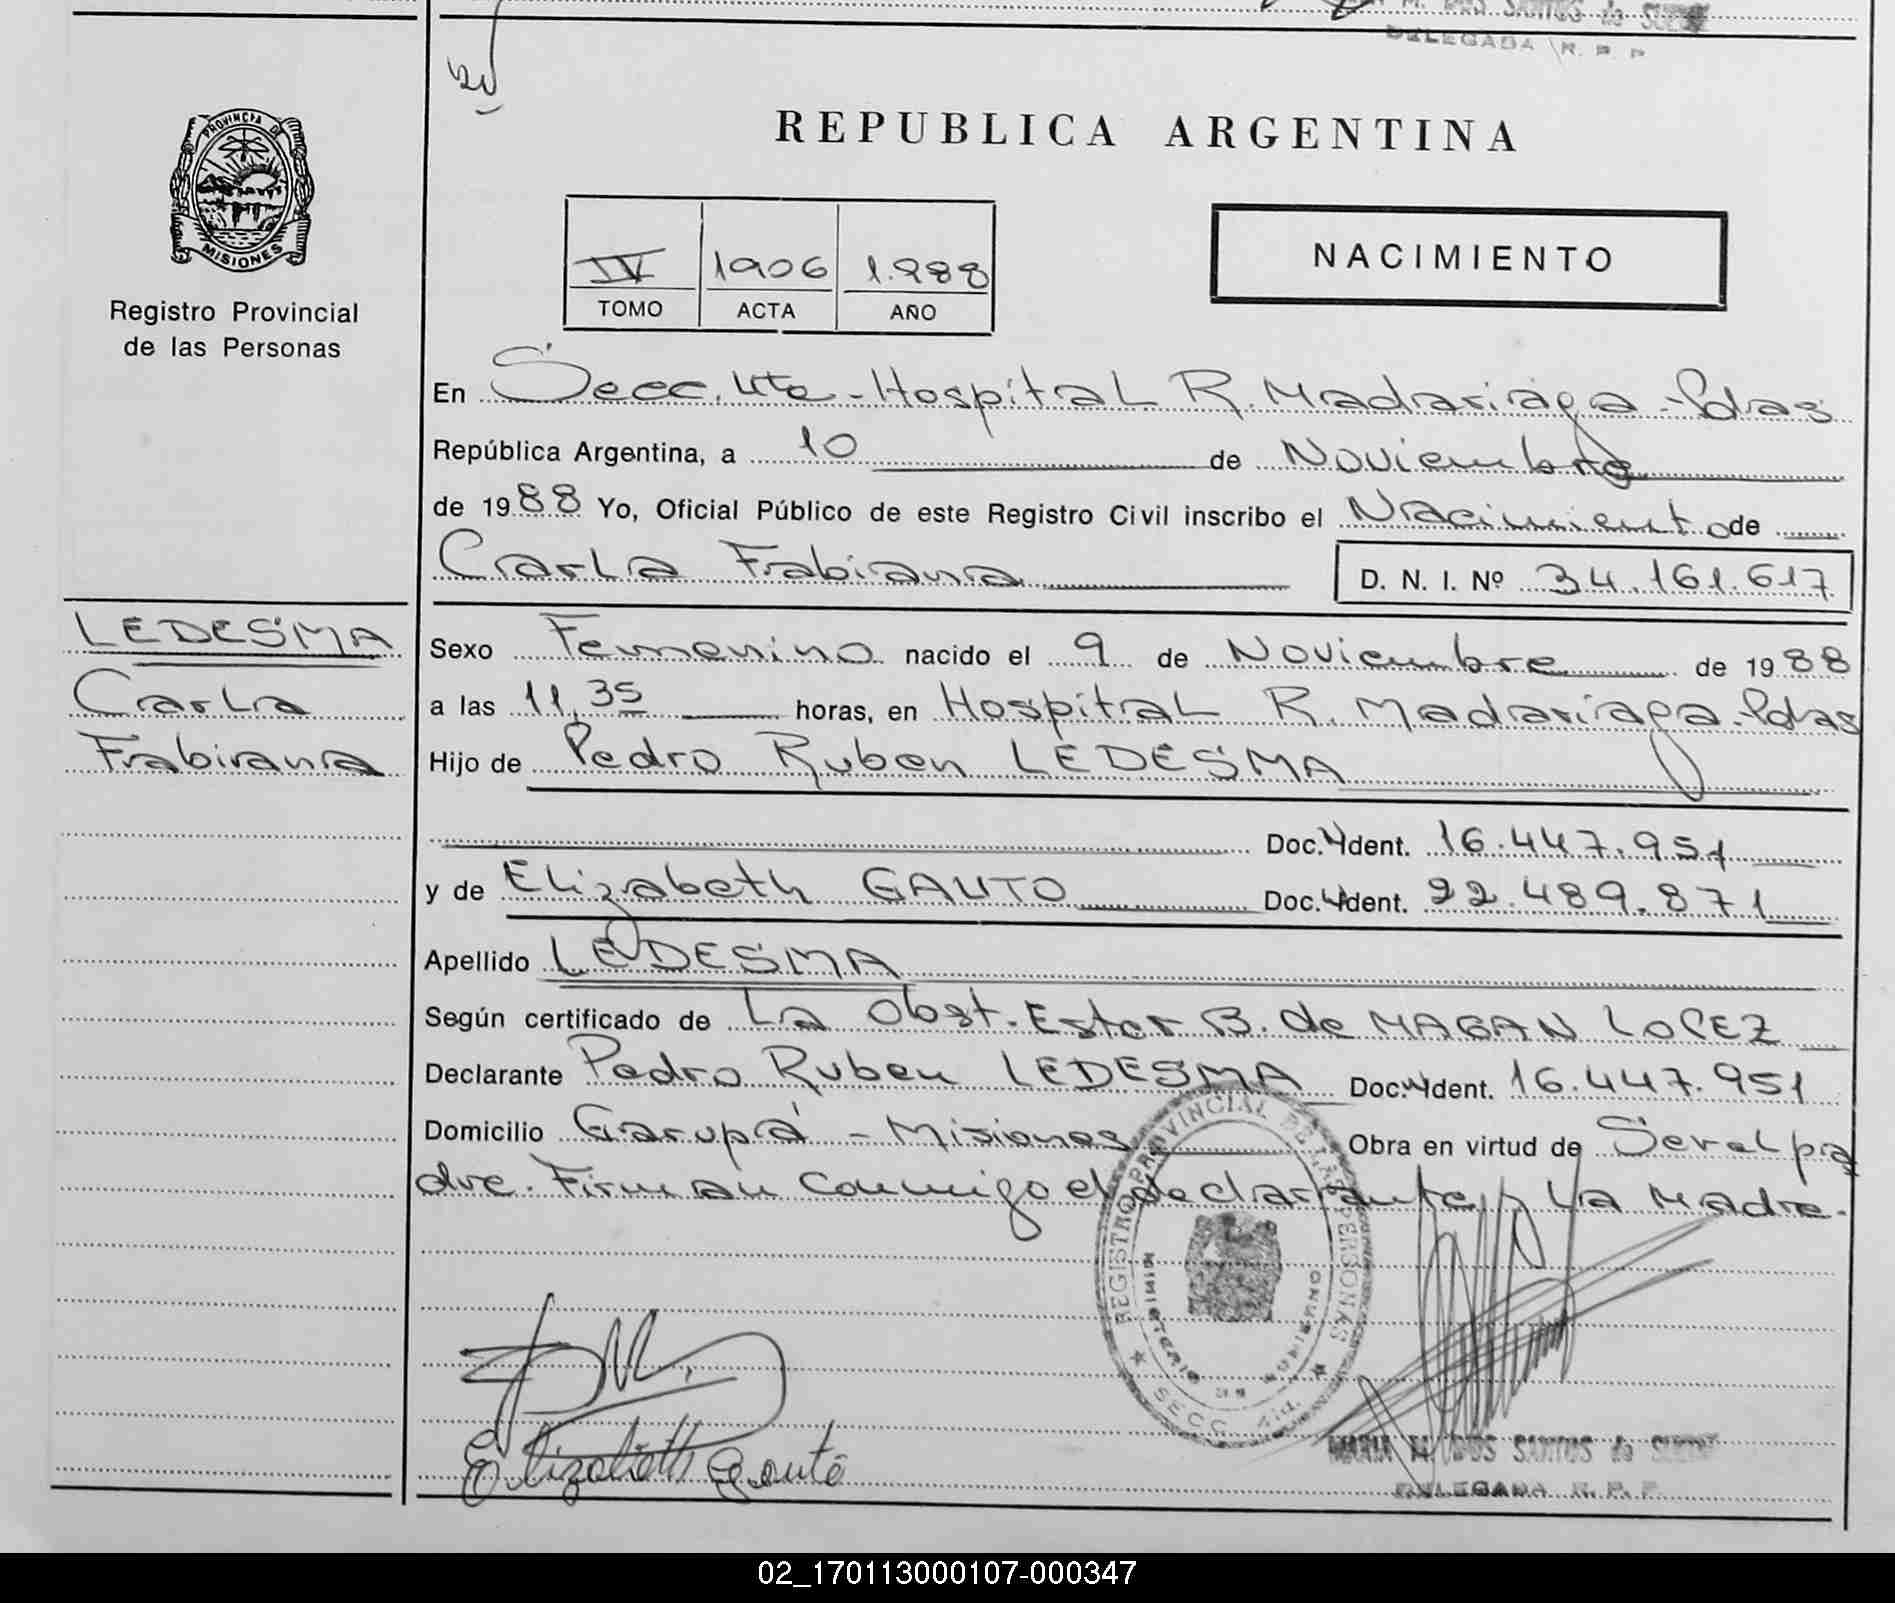 M. DOS SANTOS de
DELEGADA R. P. P
REPUBLICA ARGENTINA
PROVINCIA DE
MISIONES
Registro Provincial
de las Personas
IV 1906 1.988
TOMO ACTA AÑO
NACIMIENTO
En Secc. 4ta - Hospital R. Madariaga - Pdas
República Argentina, a 10 de Noviembre
de 1988 Yo, Oficial Público de este Registro Civil inscribo el Nacimiento de
Carla Fabiana D. N. I. Nº 34.161.617
LEDESMA
Carla
Fabiana
Sexo Femenino nacido el 9 de Noviembre de 1988
a las 11,35 horas, en Hospital R. Madariaga - Pdas
Hijo de Pedro Ruben LEDESMA
Doc. Ident. 16.447.951
y de Elizabeth GAUTO Doc. Ident. 22.489.871
Apellido LEDESMA
Según certificado de La Obst. Ester B. de MAGAN LOPEZ
Declarante Pedro Ruben LEDESMA Doc. Ident. 16.447.951
Domicilio Garupá - Misiones Obra en virtud de Ser el pa
dre. Firman conmigo el declarante y La Madre.
REGISTRO PROVINCIAL DE LAS PERSONAS
MINISTERIO DE GOBIERNO
SECC. 4ta.
Elizabeth Gauto
MARIA M. DOS SANTOS de
DELEGADA R. P. P
02_170113000107-000347